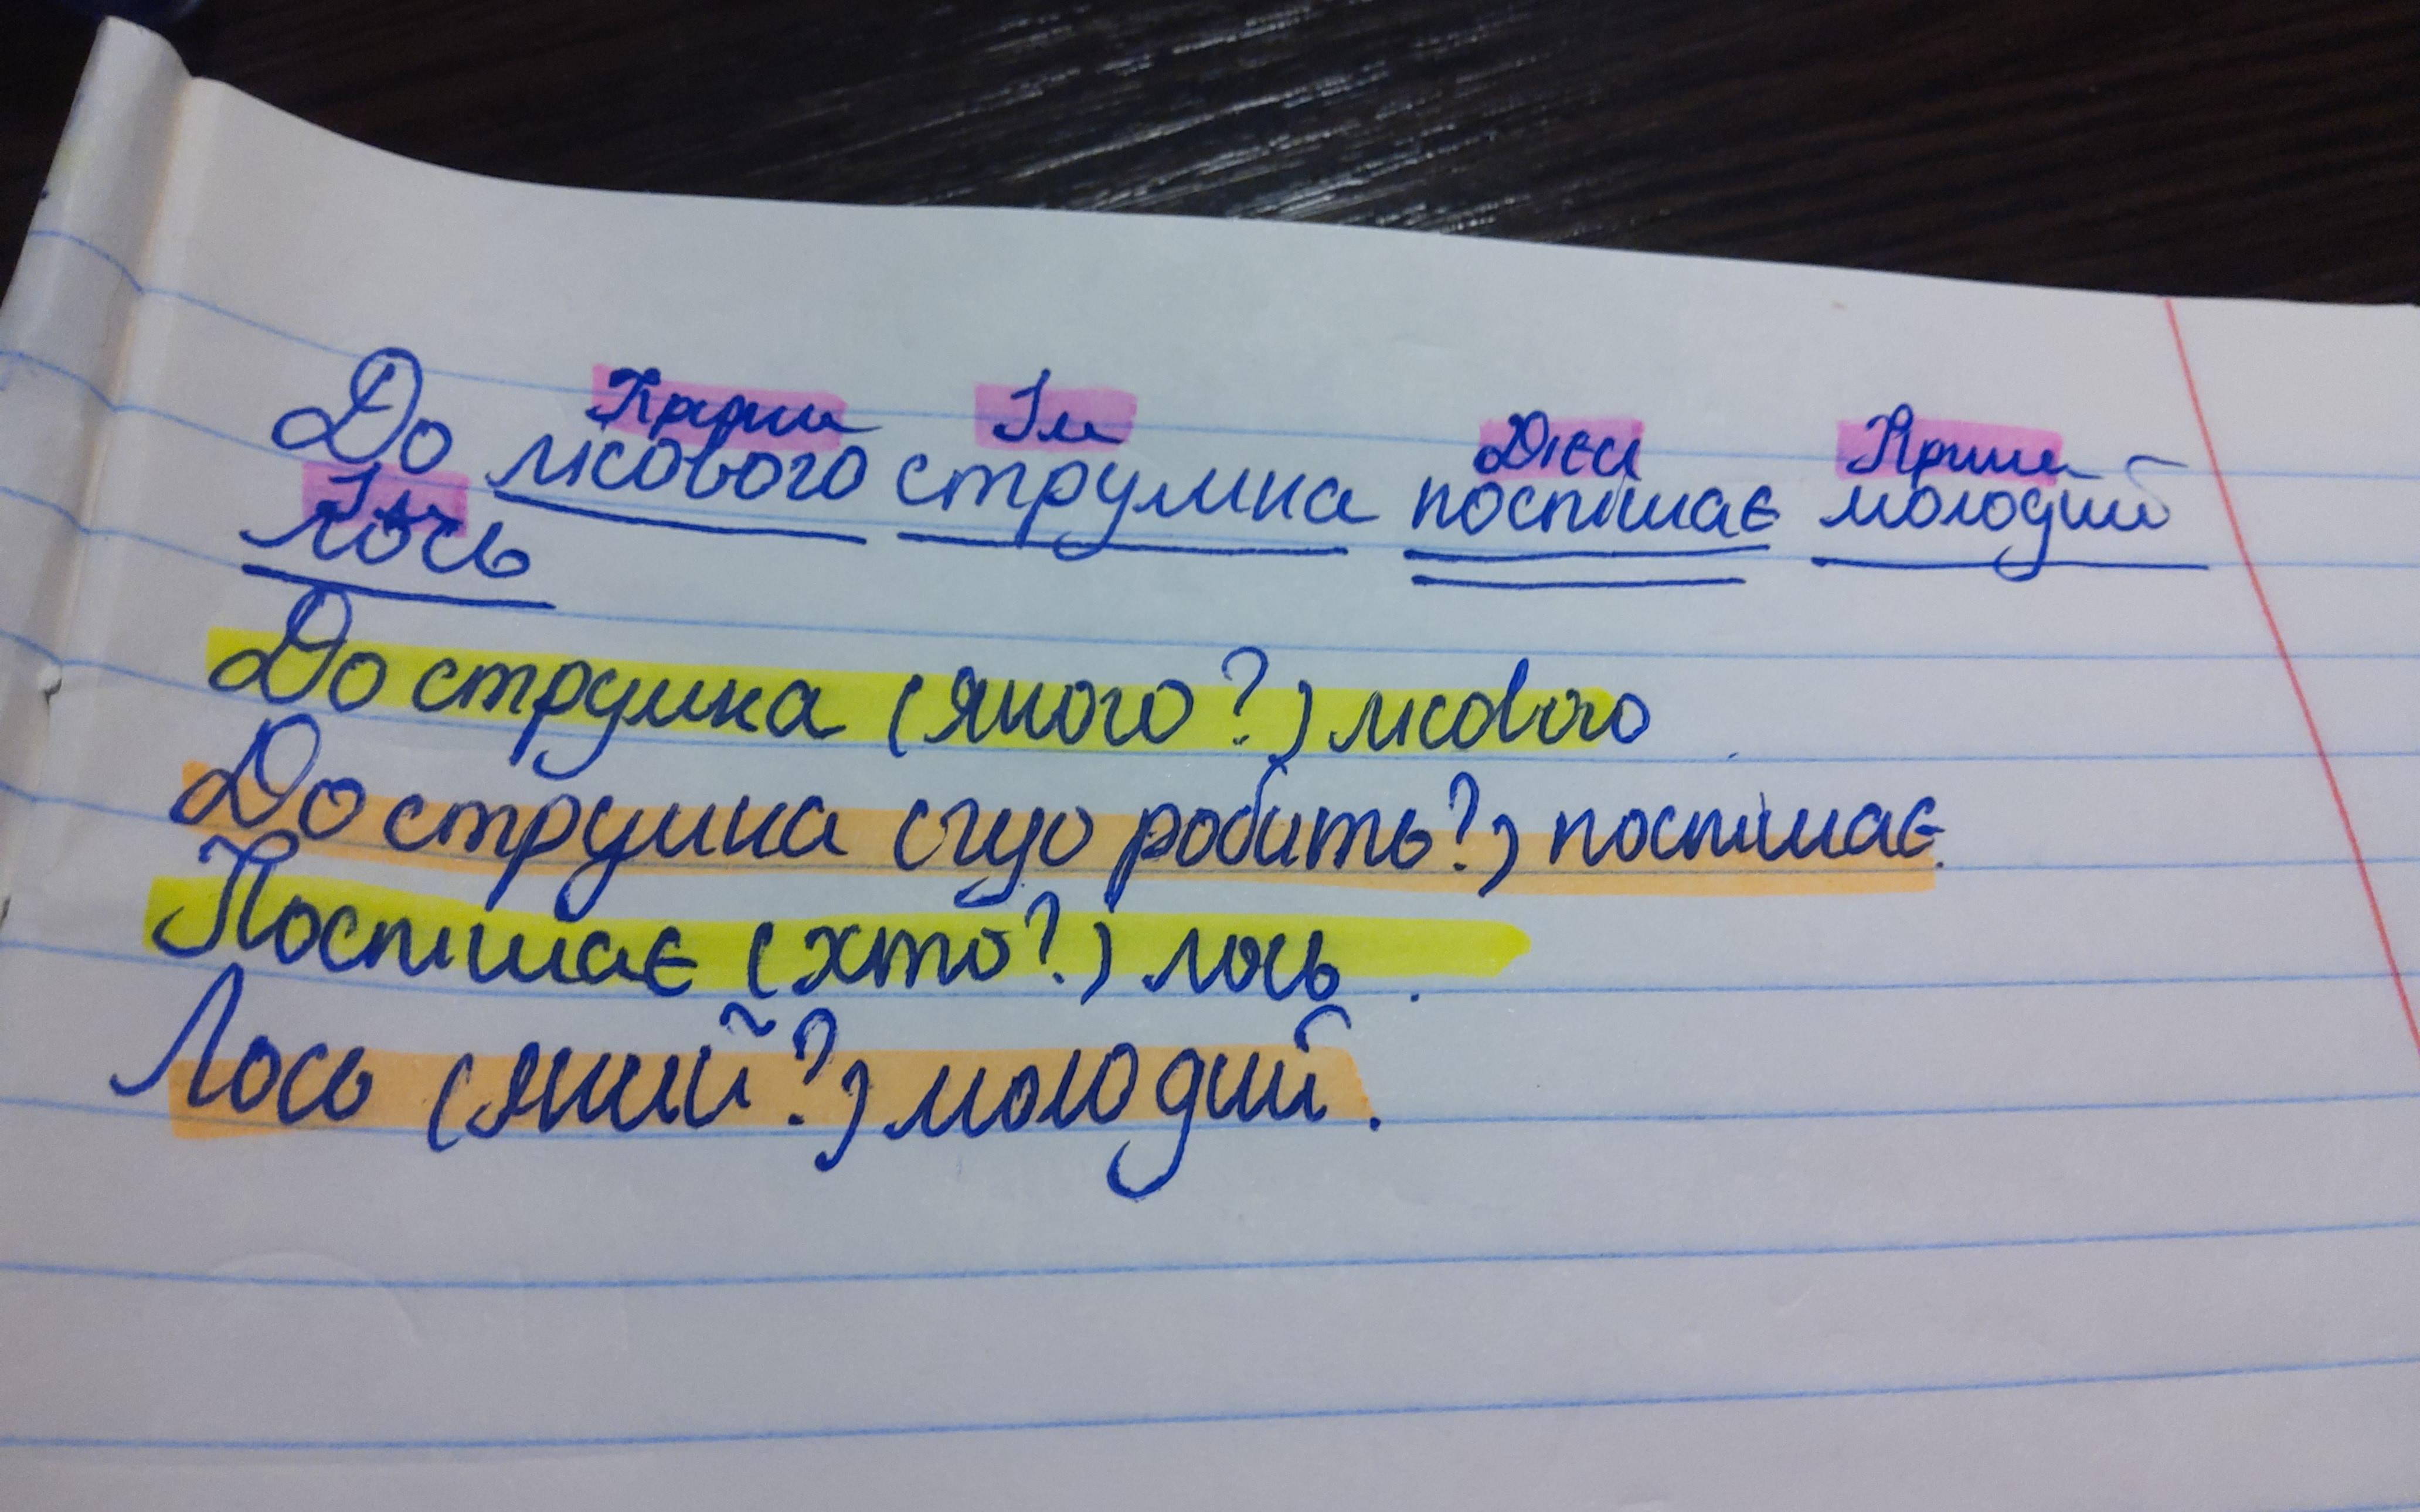 Прикм Ім Дієсл Прикм
До лісового струмка поспішає молодий
Ім
лось
До струмка (якого?) лісового
До струмка (що робить?) поспішає.
Поспішає (хто?) лось.
Лось (який?) молодий.